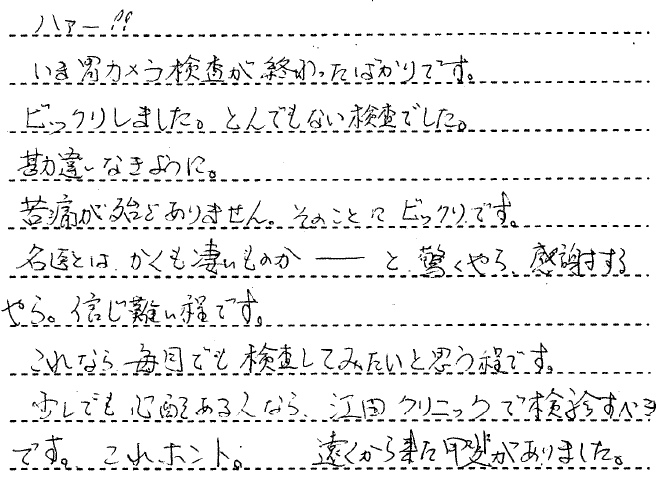 ハァー!!
いま胃カメラ検査が終わったばかりです。
ビックリしました。とんでもない検査でした。
勘違いなきように。
苦痛が殆どありません。そのことにビックリです。
名医とは、かくも凄いものか ── と、驚くやら、感謝する
やら。信じ難い程です。
これなら毎月でも検査してみたいと思う程です。
少しでも心配ある人なら、江田クリニックで検診すべき
です。これホント。 遠くから来た甲斐がありました。